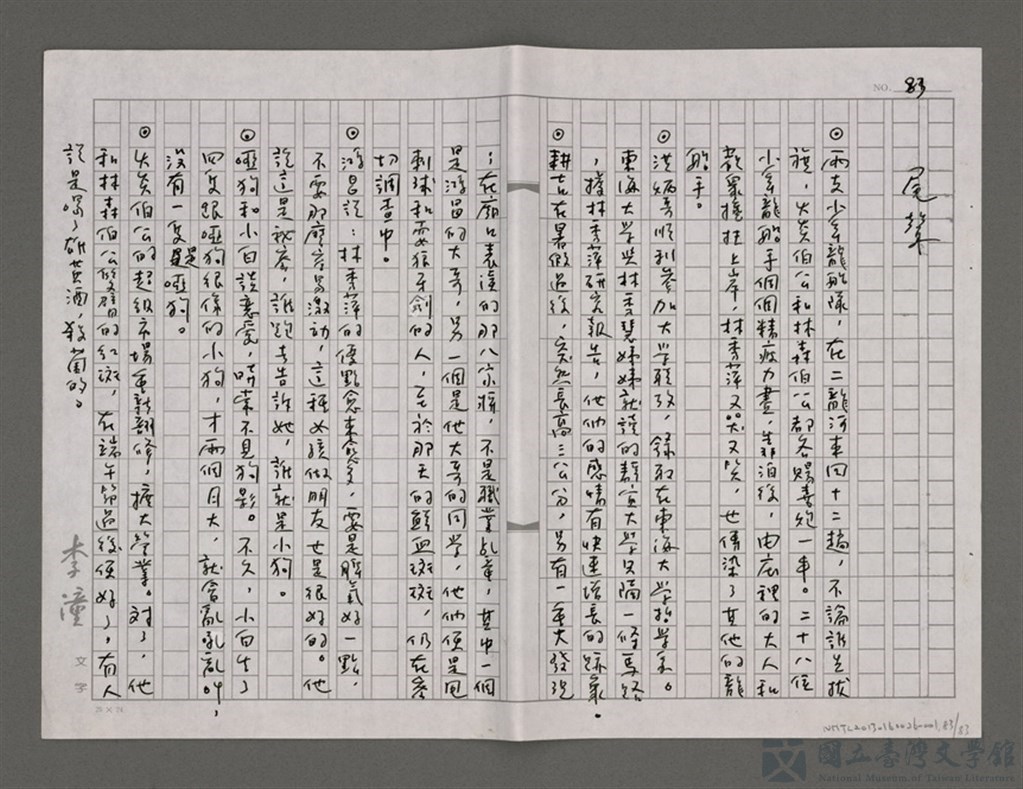 NO. 83
尾聲
◎兩支少年龍船隊,在二龍河來回十二趟,不論誰先拔
旗,火炎伯公和林森伯公都各賜喜炮一串。二十八位
少年龍船手個個精疲力盡,靠泊後,由店裡的大人和
觀眾攙扶上岸,林秀萍又哭又笑,也傳染了其他的龍
船手。
◎洪炳哥順利參加大學聯考,錄取在東海大學哲學系。
東海大學與林秀慧姊姊就讀的靜宜大學只隔一條馬路
,據林秀萍研究報告,他們的感情有快速增長的跡象。
◎耕吉在暑假過後,突然長高三公分,另有一重大發現
:在廟口表演的那八家將,不是職業乩童,其中一個
是鴻昌的大哥,另一個是他大哥的同學,他們便是甩
刺球和耍狼牙劍的人,至於那天的鮮血斑斑,仍在密
切調查中。
◎鴻昌說:林秀萍的優點愈來愈多,要是脾氣好一點,
不要那麼容易激動,這種女孩做朋友也是很好的。他
說這是祕密,誰跑去告訴她,誰就是小狗。
◎啞狗和小白談戀愛,時常不見狗影。不久,小白生了
四隻跟啞狗很像的小狗,才兩個月大,就會亂吼亂叫,
沒有一隻是啞狗。
◎火炎伯公的超級市場重新翻修,擴大營業。對了,他
和林森伯公雙臂的紅斑,在端午節過後便好了,有人
說是喝了雄黃酒,殺菌的。
李潼 文字
NMTL20130160026-001,83/83
國立臺灣文學館
National Museum of Taiwan Literature